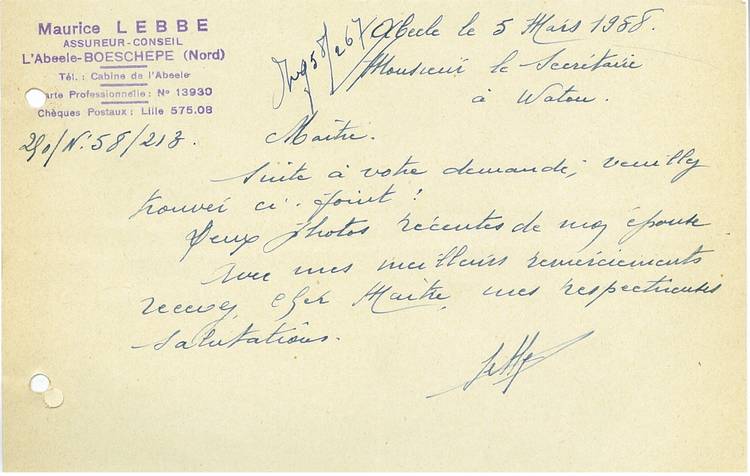 Maurice LEBBE
ASSUREUR-CONSEIL
L'Abeele-BOESCHEPE (Nord)
Tél. : Cabine de l'Abeele
arte Professionnelle : No 13930
Chèques Postaux : Lille 575.08
58/267
Abeele le 5 Mars 1958.
Monsieur le Secrétaire
à Watou.
No 58/213
Maître.
Suite à votre demande, veuillez
trouver ci-joint :
Deux photos récentes de mon épouse
Avec mes meilleurs remerciements
recevez, Cher Maître, mes respectueuses
salutations.
Lebbe